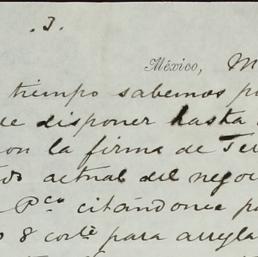 .3.
México, M
tiempo sabemos p
de disponer hasta
on la firma de Ter
do actual del negoc
Pco citándonce pa
8 corte para arregla